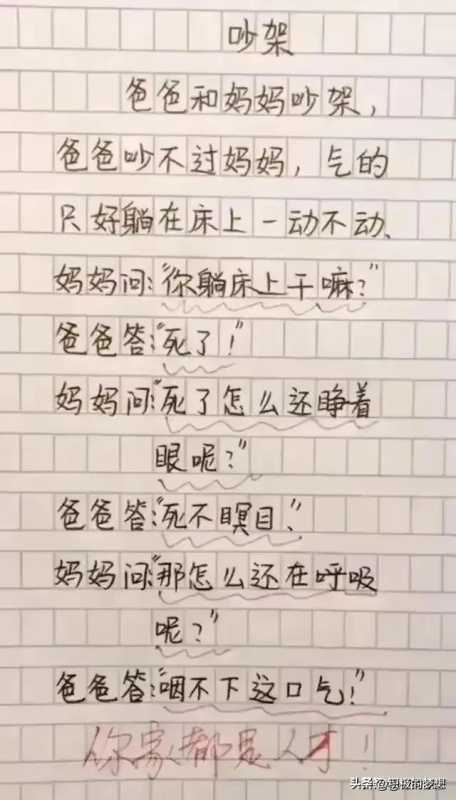 吵架
爸爸和妈妈吵架,
爸爸吵不过妈妈,气的
只好躺在床上一动不动、
妈妈问:“你躺床上干嘛?”
爸爸答:“死了!”
妈妈问:“死了怎么还睁着
眼呢?”
爸爸答:“死不瞑目、”
妈妈问:“那怎么还在呼吸
呢?”
爸爸答:“咽不下这口气!”
你家都是人才!